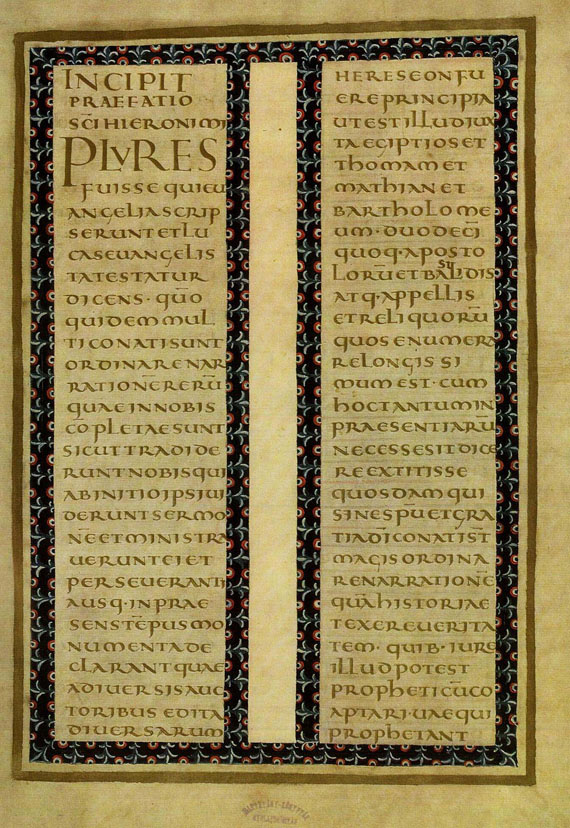 INCIPIT
PRAEFATIO
SC̄I HIERONIMI
PLURES
FUISSE QUIEU
ANGELIA SCRIP
SERUNT ET LU
CAS EUANGELIS
TA TESTATUR
DICENS · QUŌ
QUIDEM MUL
TI CONATI SUNT
ORDINARE NAR
RATIONĒ RERŪ
QUAE IN NOBIS
CŌPLETAE SUNT
SICUT TRADIDE
RUNT NOBIS QUI
AB INITIO IPSI UI
DERUNT SERMO
NĒ ET MINISTRA
UERUNT EI ET
PERSEUERANTI
A USQ · IN PRAE
SENS TĒPUS MO
NUMENTA DE
CLARANT QUAE
A DIUERSIS AUC
TORIBUS EDITA
DIUERSARUM
HERESEON FU
ERE PRINCIPIA
UT EST ILLUD IUX
TA EGIPTIOS ET
THOMAM ET
MATHIAN ET
BARTHOLOME
UM · DUODECĪ
QUOQ · APOSTO
LORŪ ET BASILIDIS
ATQ · APPELLIS
ET RELIQUORŪ
QUOS ENUMERA
RE LONGISSI
MUM EST · CUM
HOC TANTUM IN
PRAESENTIARŪ
NECESSE SIT DICE
RE EXTITISSE
QUOSDAM QUI
SINE SP̄U ET GRA
TIA DĪ CONATI ST̄
MAGIS ORDINA
RE NARRATIONĒ
QUĀ HISTORIAE
TEXERE UERITA
TEM · QUIB · IURE
ILLUD POTEST
PROPHETICŪ CO
APTARI · UAE QUI
PROPHETANT